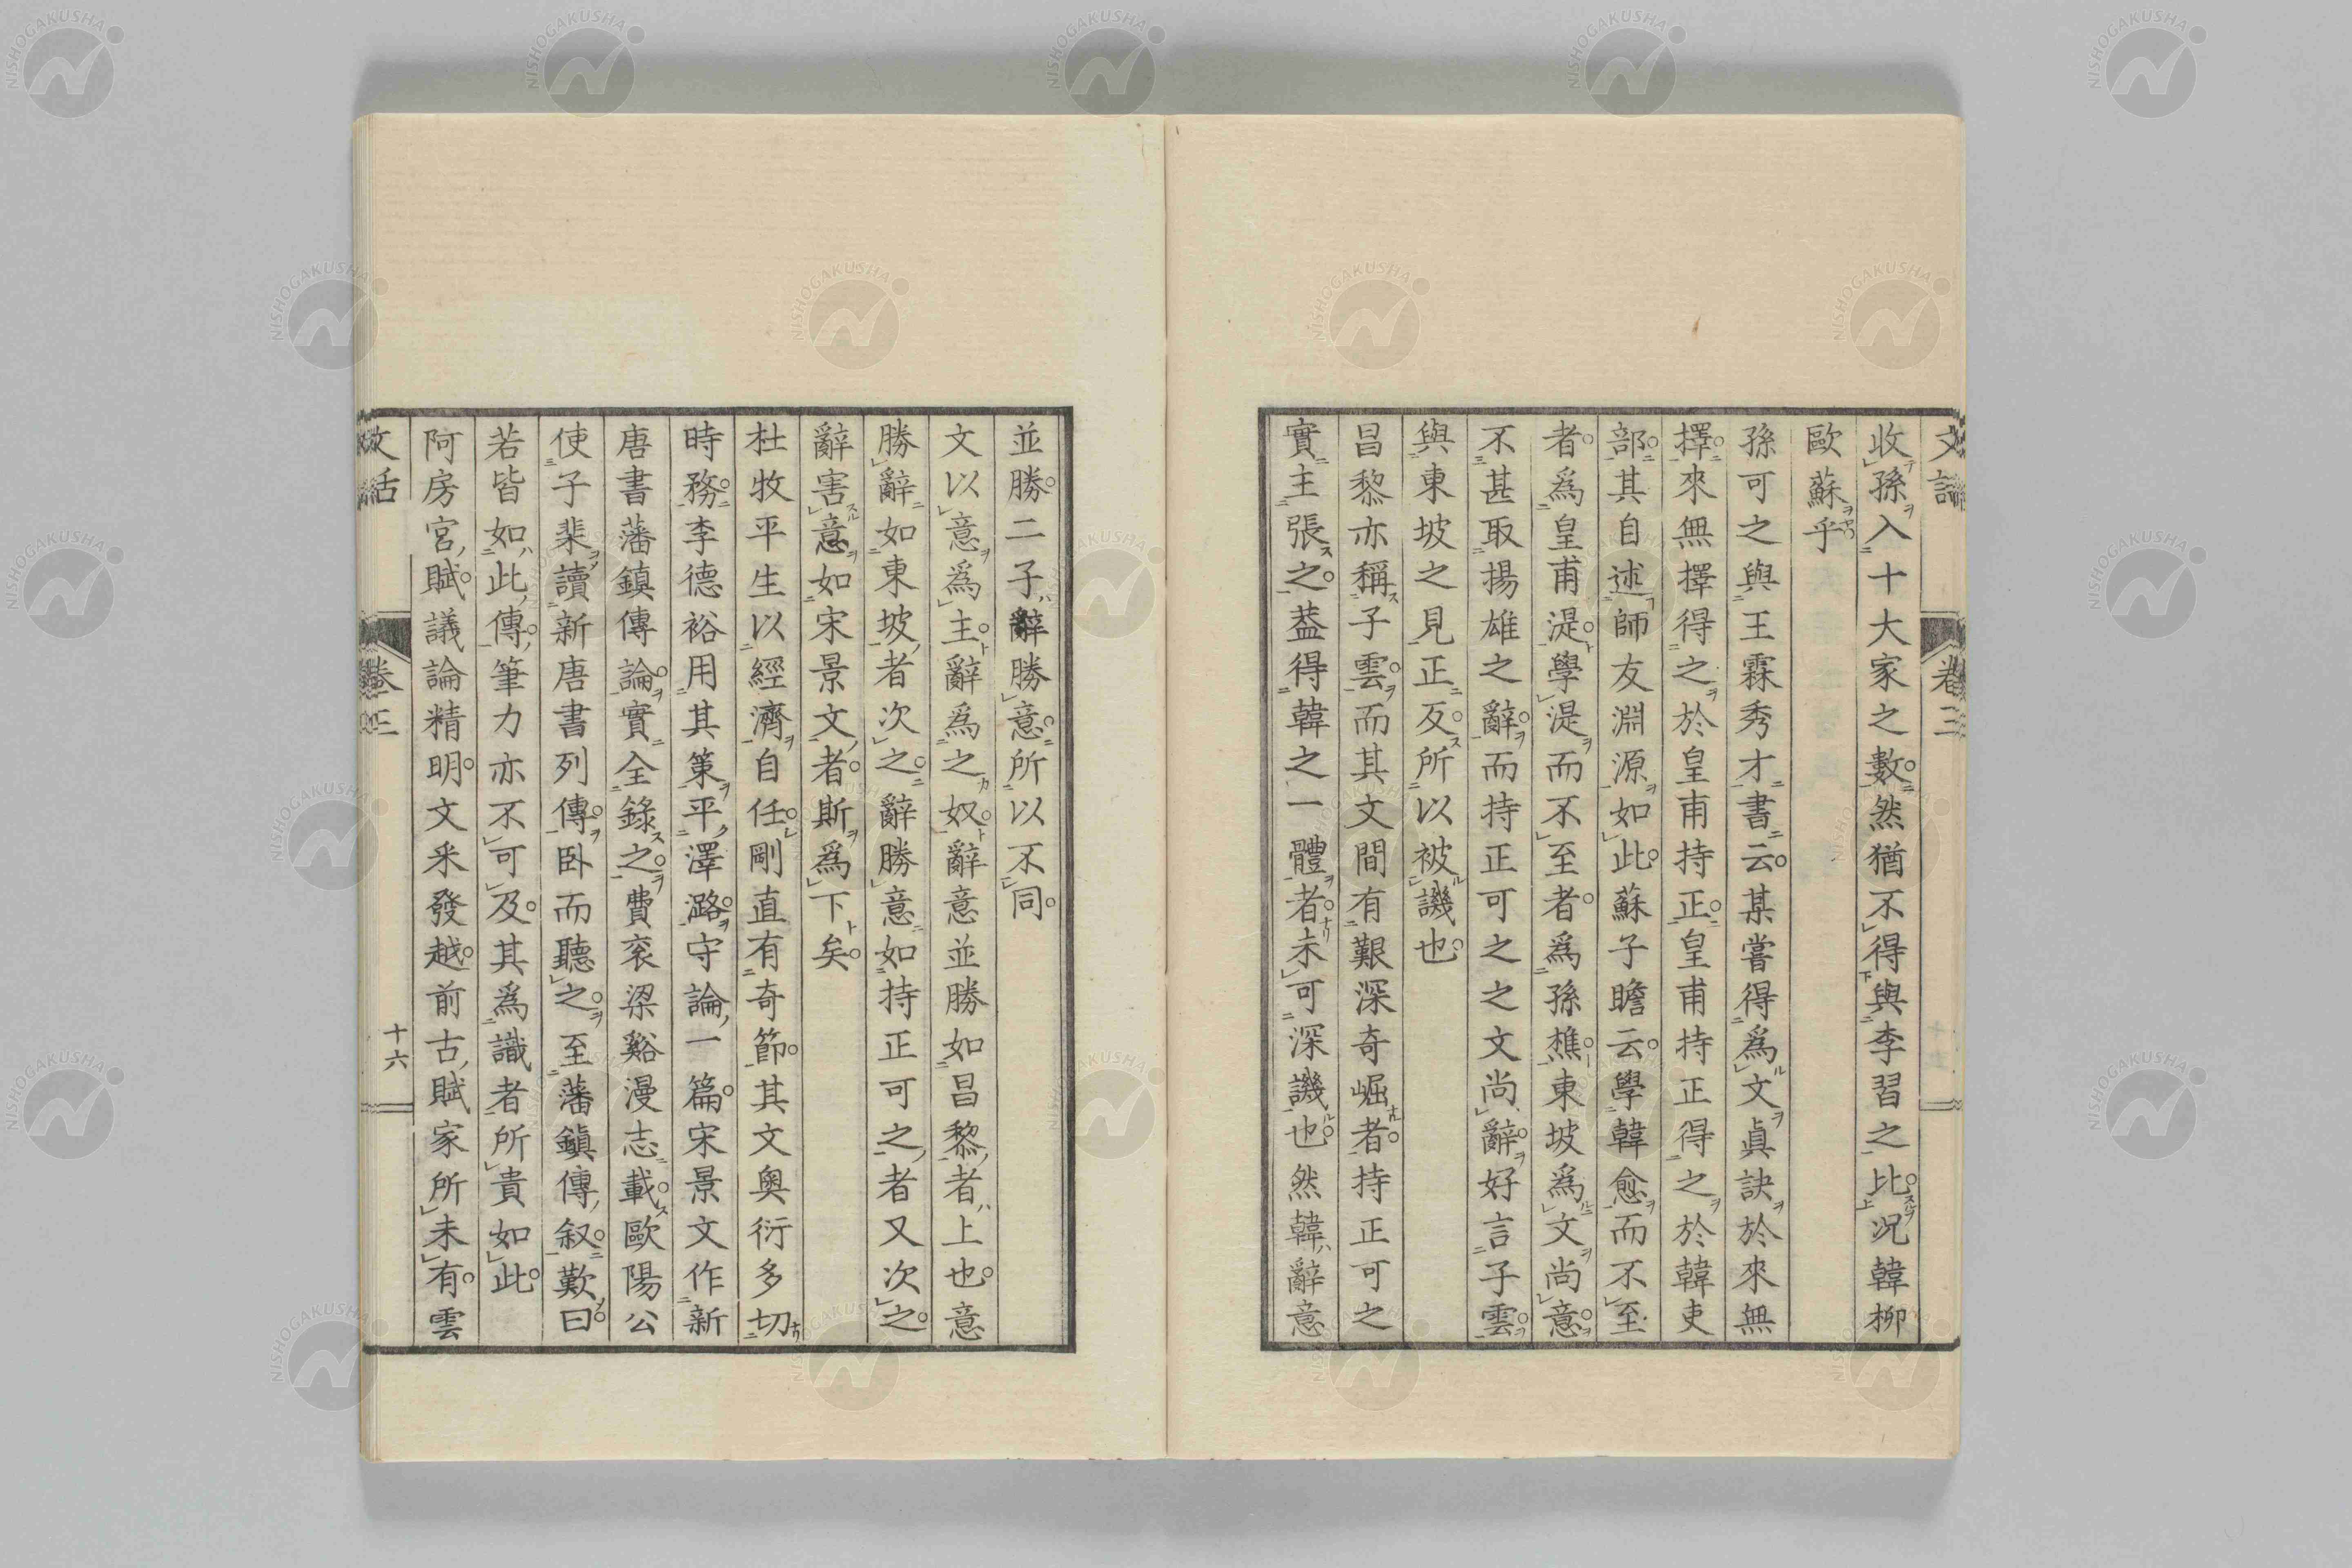 文話
卷三
收孫入十大家之數。然猶不得與李習之比。況韓柳
歐蘇乎
孫可之與王霖秀才書云。某嘗得為文眞訣於來無
擇。來無擇得之於皇甫持正。皇甫持正得之於韓吏
部。其自述師友淵源如此。蘇子瞻云。學韓愈而不至
者。為皇甫湜。學湜而不至者。為孫樵。東坡為文尚意。
不甚取揚雄之辭。而持正可之之文尚辭。好言子雲。
與東坡之見正反。所以被譏也。
昌黎亦稱子雲。而其文間有艱深奇崛者。持正可之
實主張之。葢得韓之一體者。未可深譏也。然韓辭意
並勝。二子辭勝意。所以不同。
文以意為主。辭為之奴。辭意並勝如昌黎者上也。意
勝辭如東坡者次之。辭勝意如持正可之者又次之。
辭害意如宋景文者。斯為下矣。
杜牧平生以經濟自任。剛直有奇節。其文奧衍多切
時務。李德裕用其策平澤潞。守論一篇。宋景文作新
唐書藩鎮傳論。實全錄之。費袞梁谿漫志載。歐陽公
使子棐讀新唐書列傳。卧而聽之。至藩鎮傳叙。歎曰。
若皆如此傳。筆力亦不可及。其為識者所貴如此。
阿房宮賦。議論精明。文釆發越。前古賦家所未有。雲
文話
卷三
十六
NISHOGAKUSHA